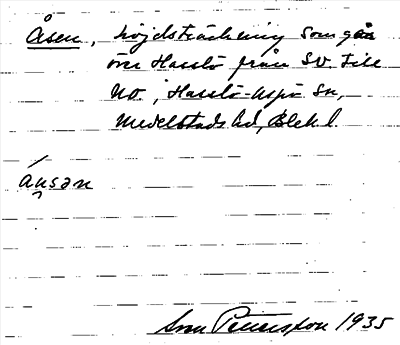 Åsen, höjdsträckning som går
över Hasslö från SV till
NO, Hasslö-Aspö sn,
Medelstads hd, Blek. l.
åusən
Sven Pettersson 1935